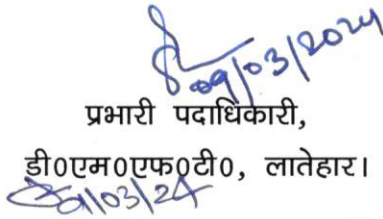 09/03/2024
प्रभारी पदाधिकारी,
डी0एम0एफ0टी0, लातेहार।
9/03/24